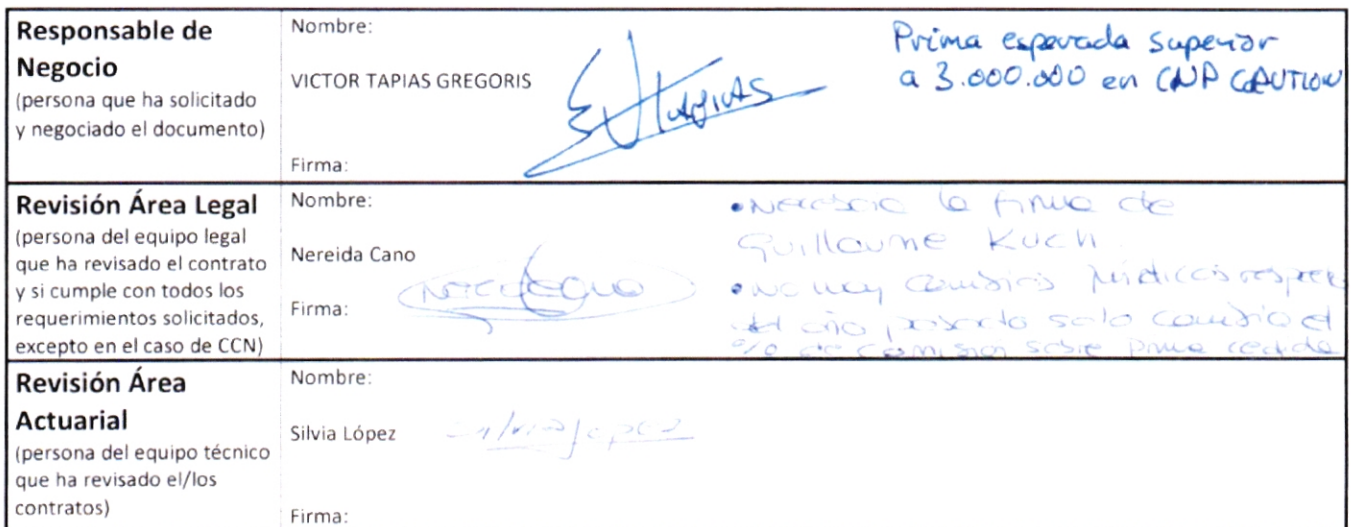 Responsable de
Negocio
(persona que ha solicitado
y negociado el documento)
Nombre:
VICTOR TAPIAS GREGORIS
Firma:
Tapias
Prima esperada superior
a 3.000.000 en CNP CAUTION
Revisión Área Legal
(persona del equipo legal
que ha revisado el contrato
y si cumple con todos los
requerimientos solicitados,
excepto en el caso de CCN)
Nombre:
Nereida Cano
Firma:
• Necesario la firma de
Guillaume Kuch.
• No hay cambios jurídicos respecto
al año pasado solo cambio el
% de comisión sobre prima cedida
Revisión Área
Actuarial
(persona del equipo técnico
que ha revisado el/los
contratos)
Nombre:
Silvia López
Silvia López
Firma: